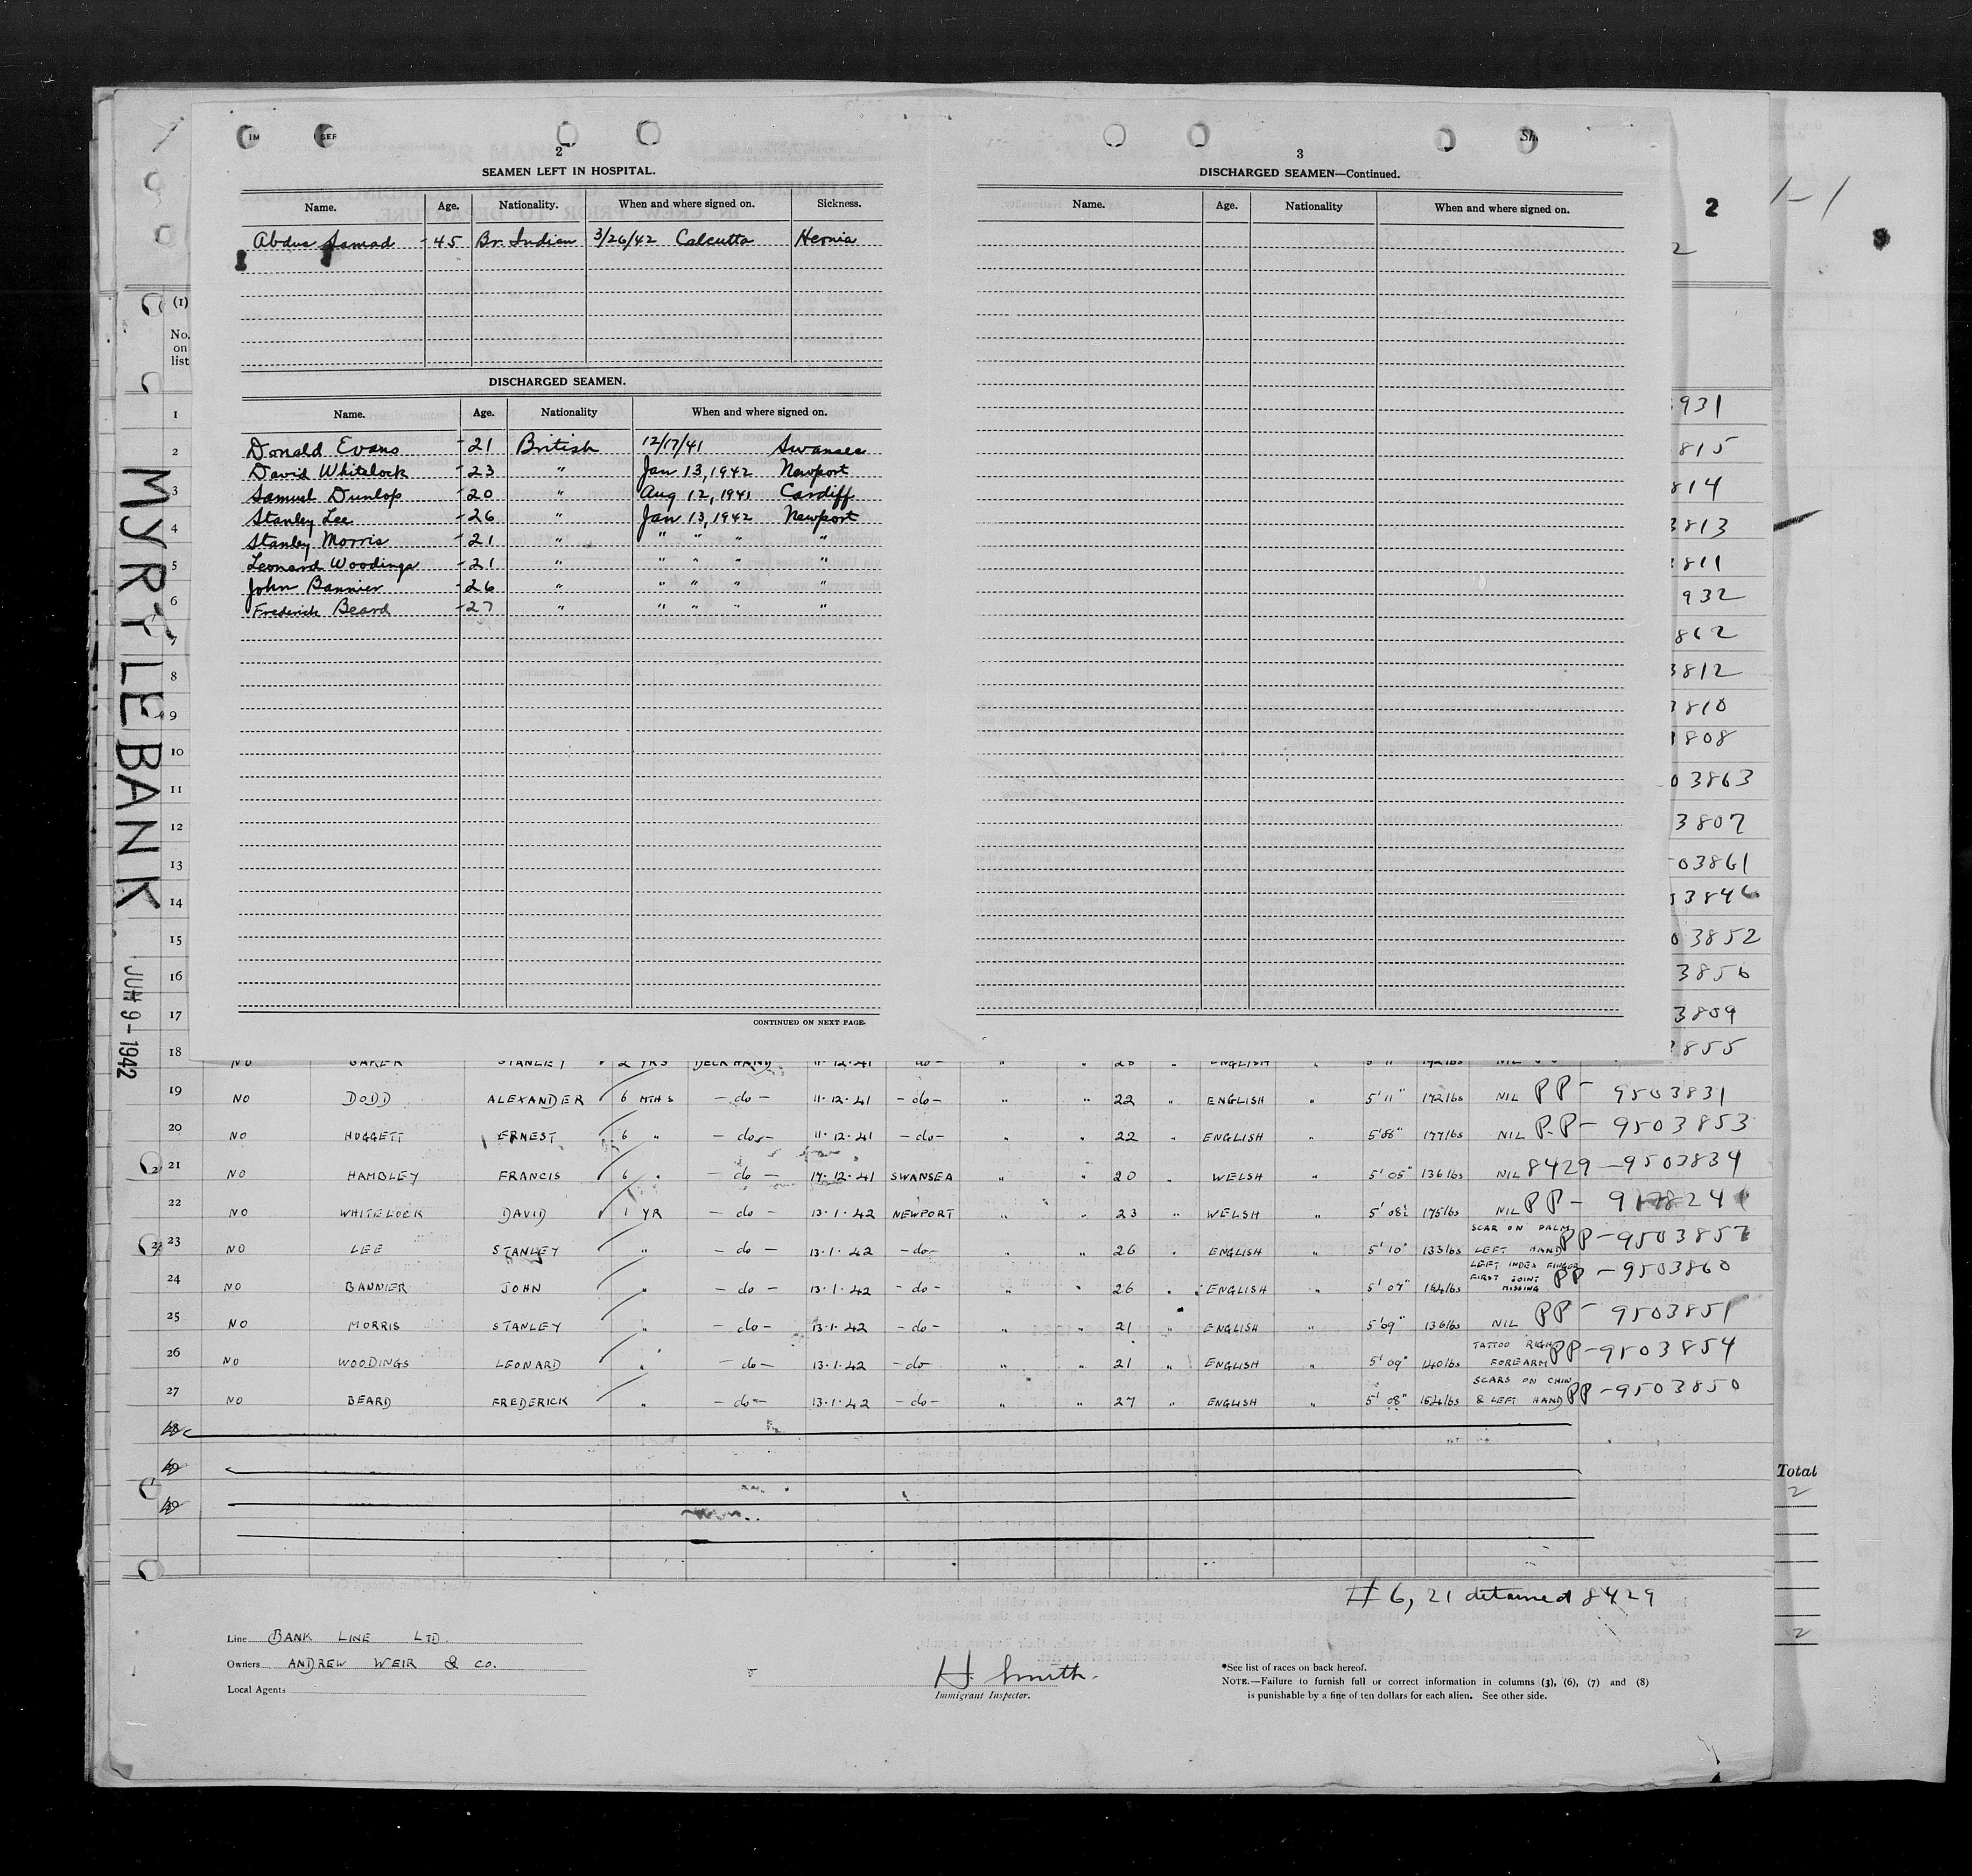 2
SEAMEN LEFT IN HOSPITAL.
Name. Age. Nationality. When and where signed on. Sickness.
Abdus Samad - 45 Br. Indian 3/26/42 Calcutta Hernia
DISCHARGED SEAMEN.
Name. Age. Nationality When and where signed on.
Donald Evans - 21 British 12/17/41 Swansea
David Whitelock - 23 " Jan 13, 1942 Newport
Samuel Dunlop - 20 " Aug 12, 1941 Cardiff
Stanley Lee - 26 " Jan 13, 1942 Newport
Stanley Morris - 21 " " " " "
Leonard Woodings - 21 " " " " "
John Bannier - 26 " " " " "
Frederick Beard - 27 " " " " "
CONTINUED ON NEXT PAGE.
3
DISCHARGED SEAMEN—Continued.
Name. Age. Nationality When and where signed on.
2
1-1
9
MYRTLEBANK
JUN 9-1942
(1)
No.
on
list
1 931
2 815
3 814
4 3813
5 811
6 932
7 862
8 3812
9 3810
10 808
11 03863
12 3807
13 03861
14 3846
15 03852
16 3856
17 3809
18 NO BAKER STANLEY 2 YRS DECK HAND 11.12.41 -do- " " 28 " ENGLISH " 5'11" 192lbs NIL 855
19 NO DODD ALEXANDER 6 MTHS -do- 11.12.41 -do- " " 22 " ENGLISH " 5'11" 172lbs NIL PP- 9503831
20 NO HUGGETT ERNEST 6 " -do- 11.12.41 -do- " " 22 " ENGLISH " 5'08" 177lbs NIL P.P- 9503853
21 NO HAMBLEY FRANCIS 6 " -do- 17.12.41 SWANSEA " " 20 " WELSH " 5'05" 136lbs NIL 8429-9503834
22 NO WHITELOCK DAVID 1 YR -do- 13.1.42 NEWPORT " " 23 " WELSH " 5'08½ 175lbs NIL PP-
23 NO LEE STANLEY " -do- 13.1.42 -do- " " 26 " ENGLISH " 5'10" 133lbs SCAR ON PALM LEFT HAND PP-9503857
24 NO BANNIER JOHN " -do- 13.1.42 -do- " " 26 " ENGLISH " 5'07" 164lbs LEFT INDEX FINGER FIRST JOINT MISSING PP-9503860
25 NO MORRIS STANLEY " -do- 13.1.42 -do- " " 21 " ENGLISH " 5'09" 136lbs NIL PP- 9503851
26 NO WOODINGS LEONARD " -do- 13.1.42 -do- " " 21 " ENGLISH " 5'09" 140lbs TATTOO RIGHT FOREARM PP-9503854
27 NO BEARD FREDERICK " -do- 13.1.42 -do- " " 27 " ENGLISH " 5'08" 154lbs SCARS ON CHIN & LEFT HAND PP-9503850
Total
2
2
# 6, 21 detained 8429
Line BANK LINE LTD.
Owners ANDREW WEIR & CO.
Local Agents
H. Smith.
Immigrant Inspector.
*See list of races on back hereof.
NOTE.—Failure to furnish full or correct information in columns (3), (6), (7) and (8)
is punishable by a fine of ten dollars for each alien. See other side.